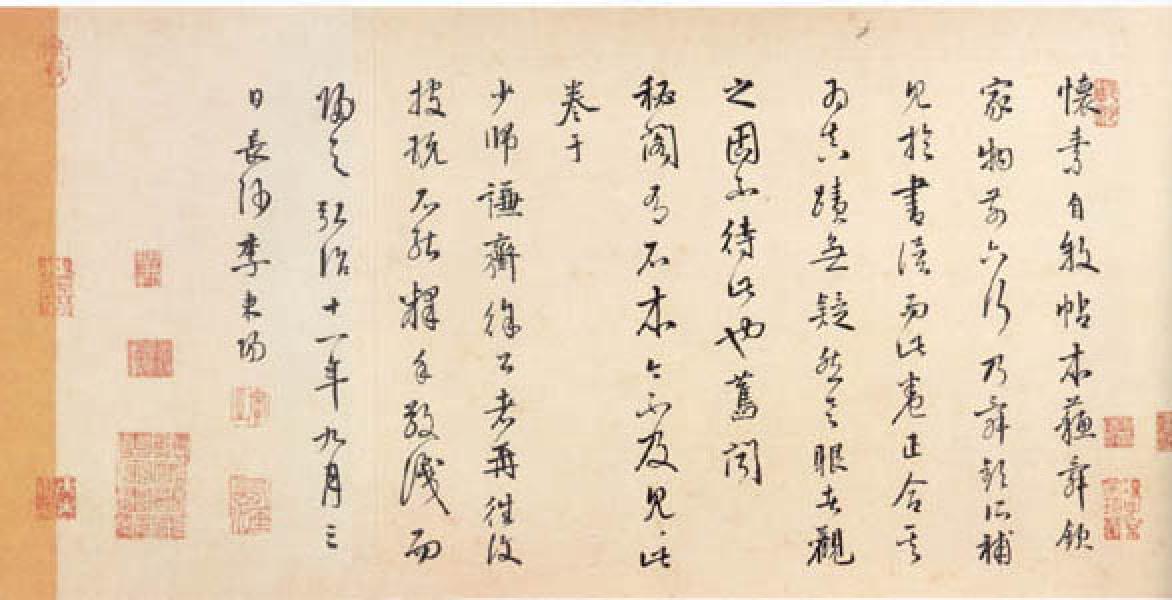 懷素自敘帖本蘇舜欽
家物前六行乃舜欽所補
見於書譜而此卷正合其
為真蹟無疑然具眼者觀
之固不待此也舊聞
秘閣有石本今不及見此
卷于
少師謙齋徐公者再往復
披玩不能釋手敬識而
歸之弘治十一年九月三
日長沙李東陽